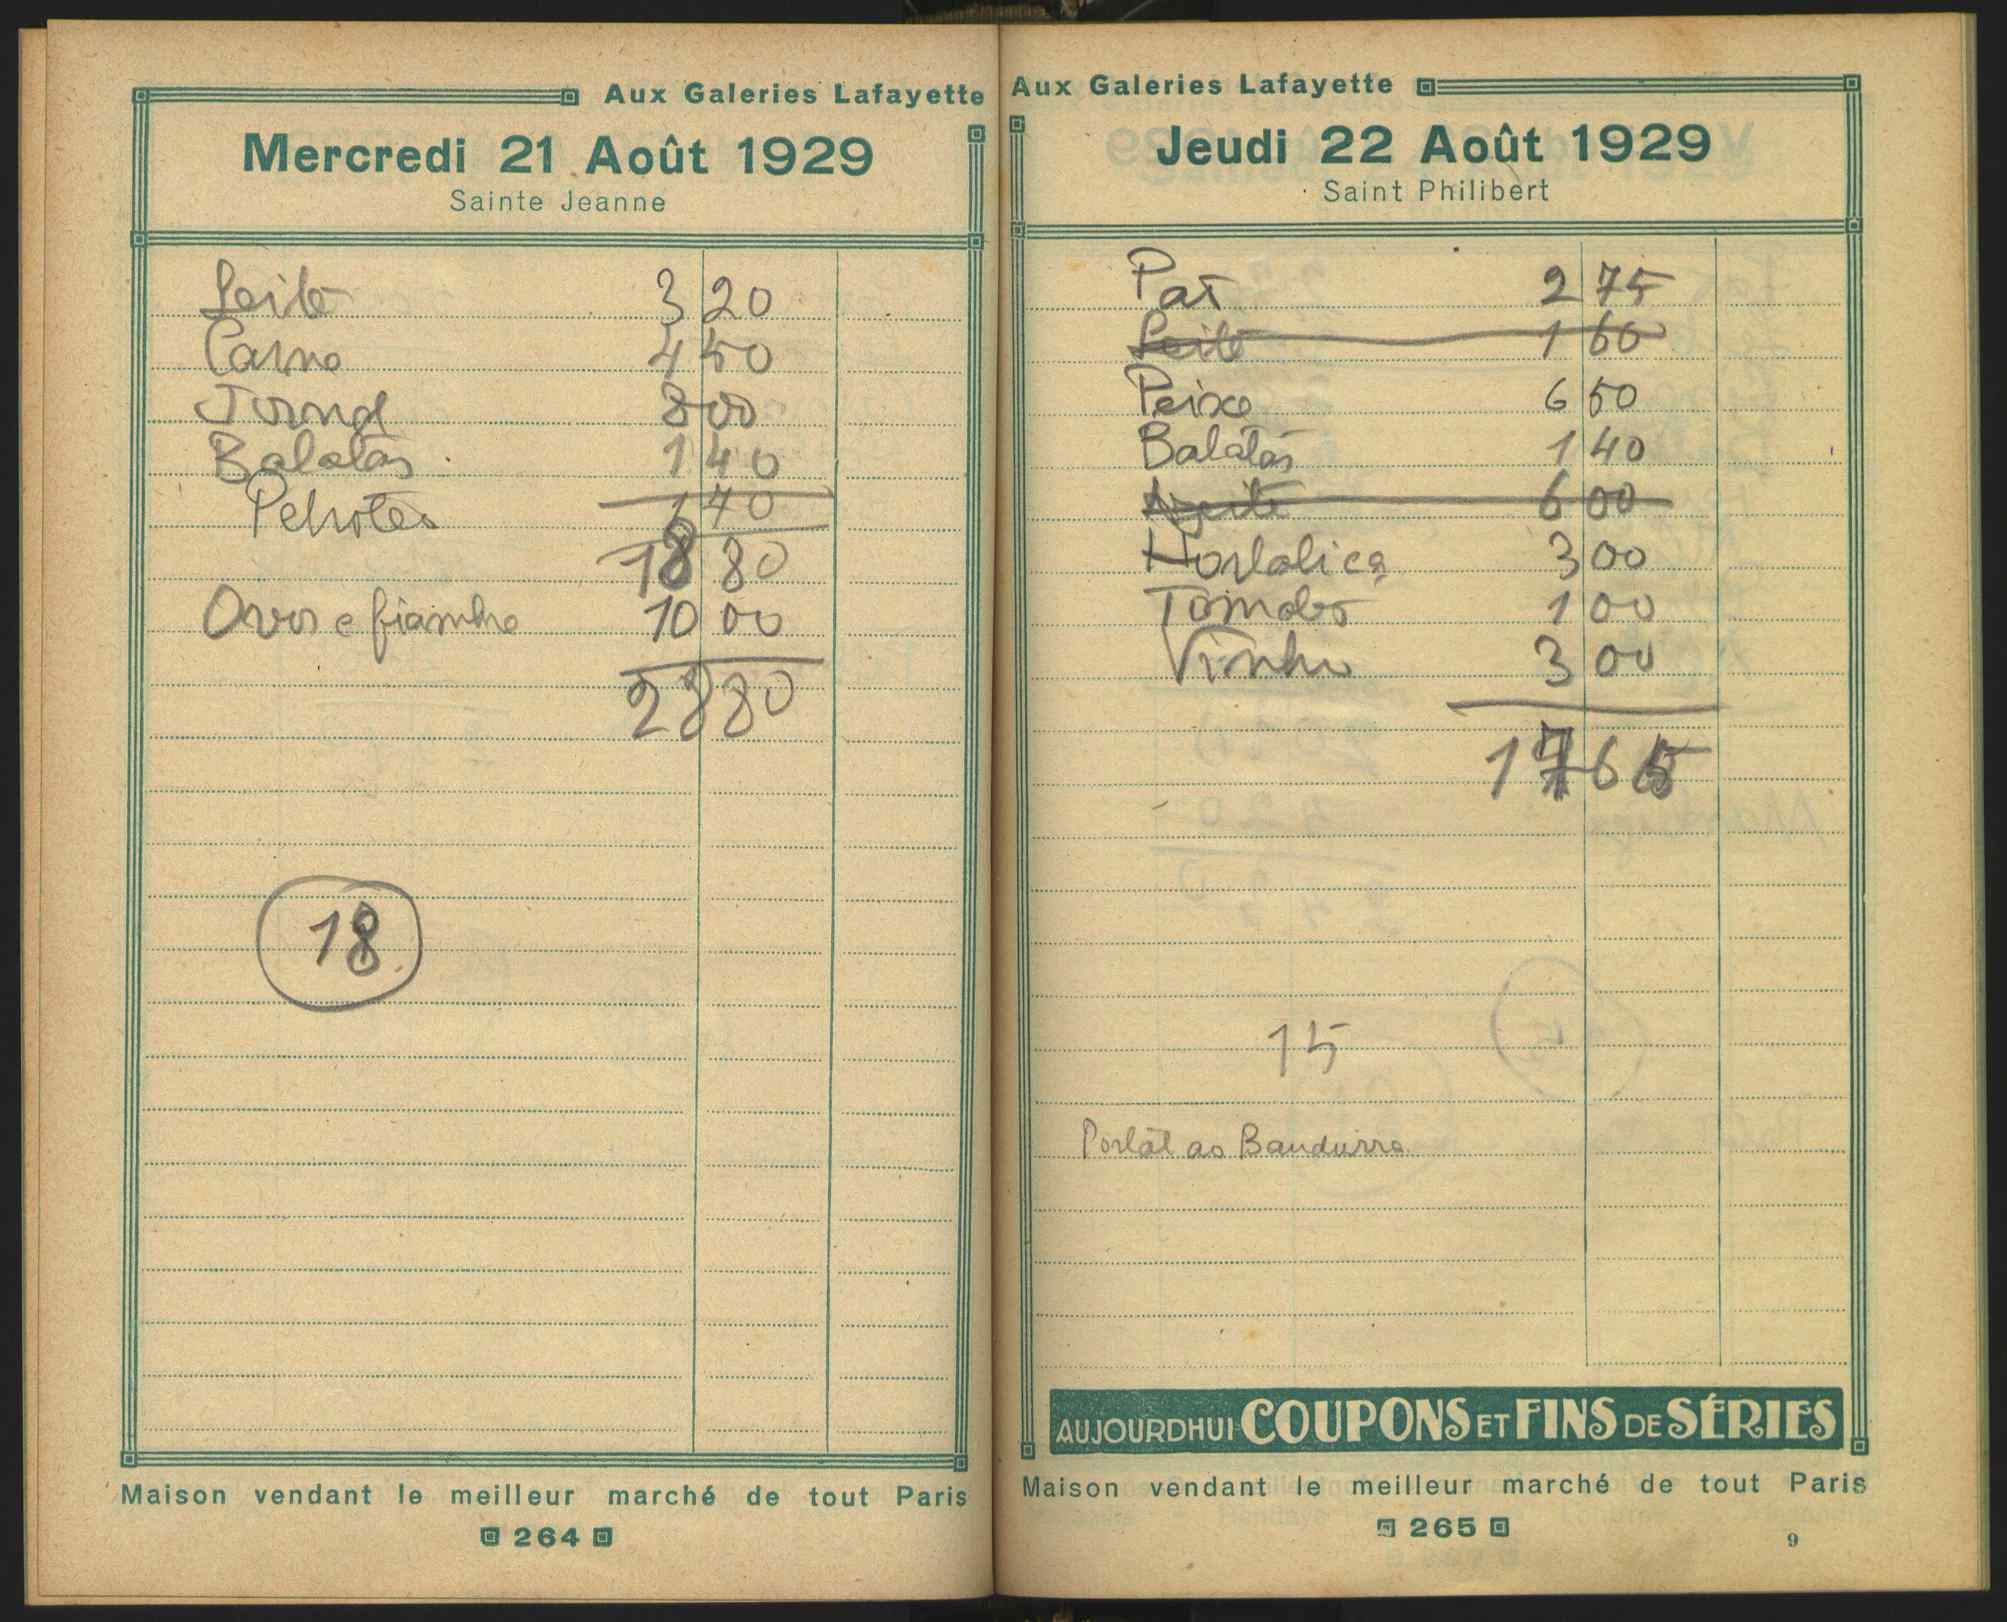 Aux Galeries Lafayette
Mercredi 21 Août 1929
Sainte Jeanne
Leite 3 20
Carne 4 50
Jornal 8 00
Batatas 1 40
1 70
18 80
Ovos e fiambre 10 00
28 80
18
Maison vendant le meilleur marché de tout Paris
264
Aux Galeries Lafayette
Jeudi 22 Août 1929
Saint Philibert
Pat 2 75
Leite 1 60
Peixe 6 50
Batatas 1 40
Azeite 6 00
Hortaliça 3 00
Tomates 1 00
Vinho 3 00
17 65
15
Postal ao Bandurra
AUJOURDHUI COUPONS ET FINS DE SÉRIES
Maison vendant le meilleur marché de tout Paris
265
9